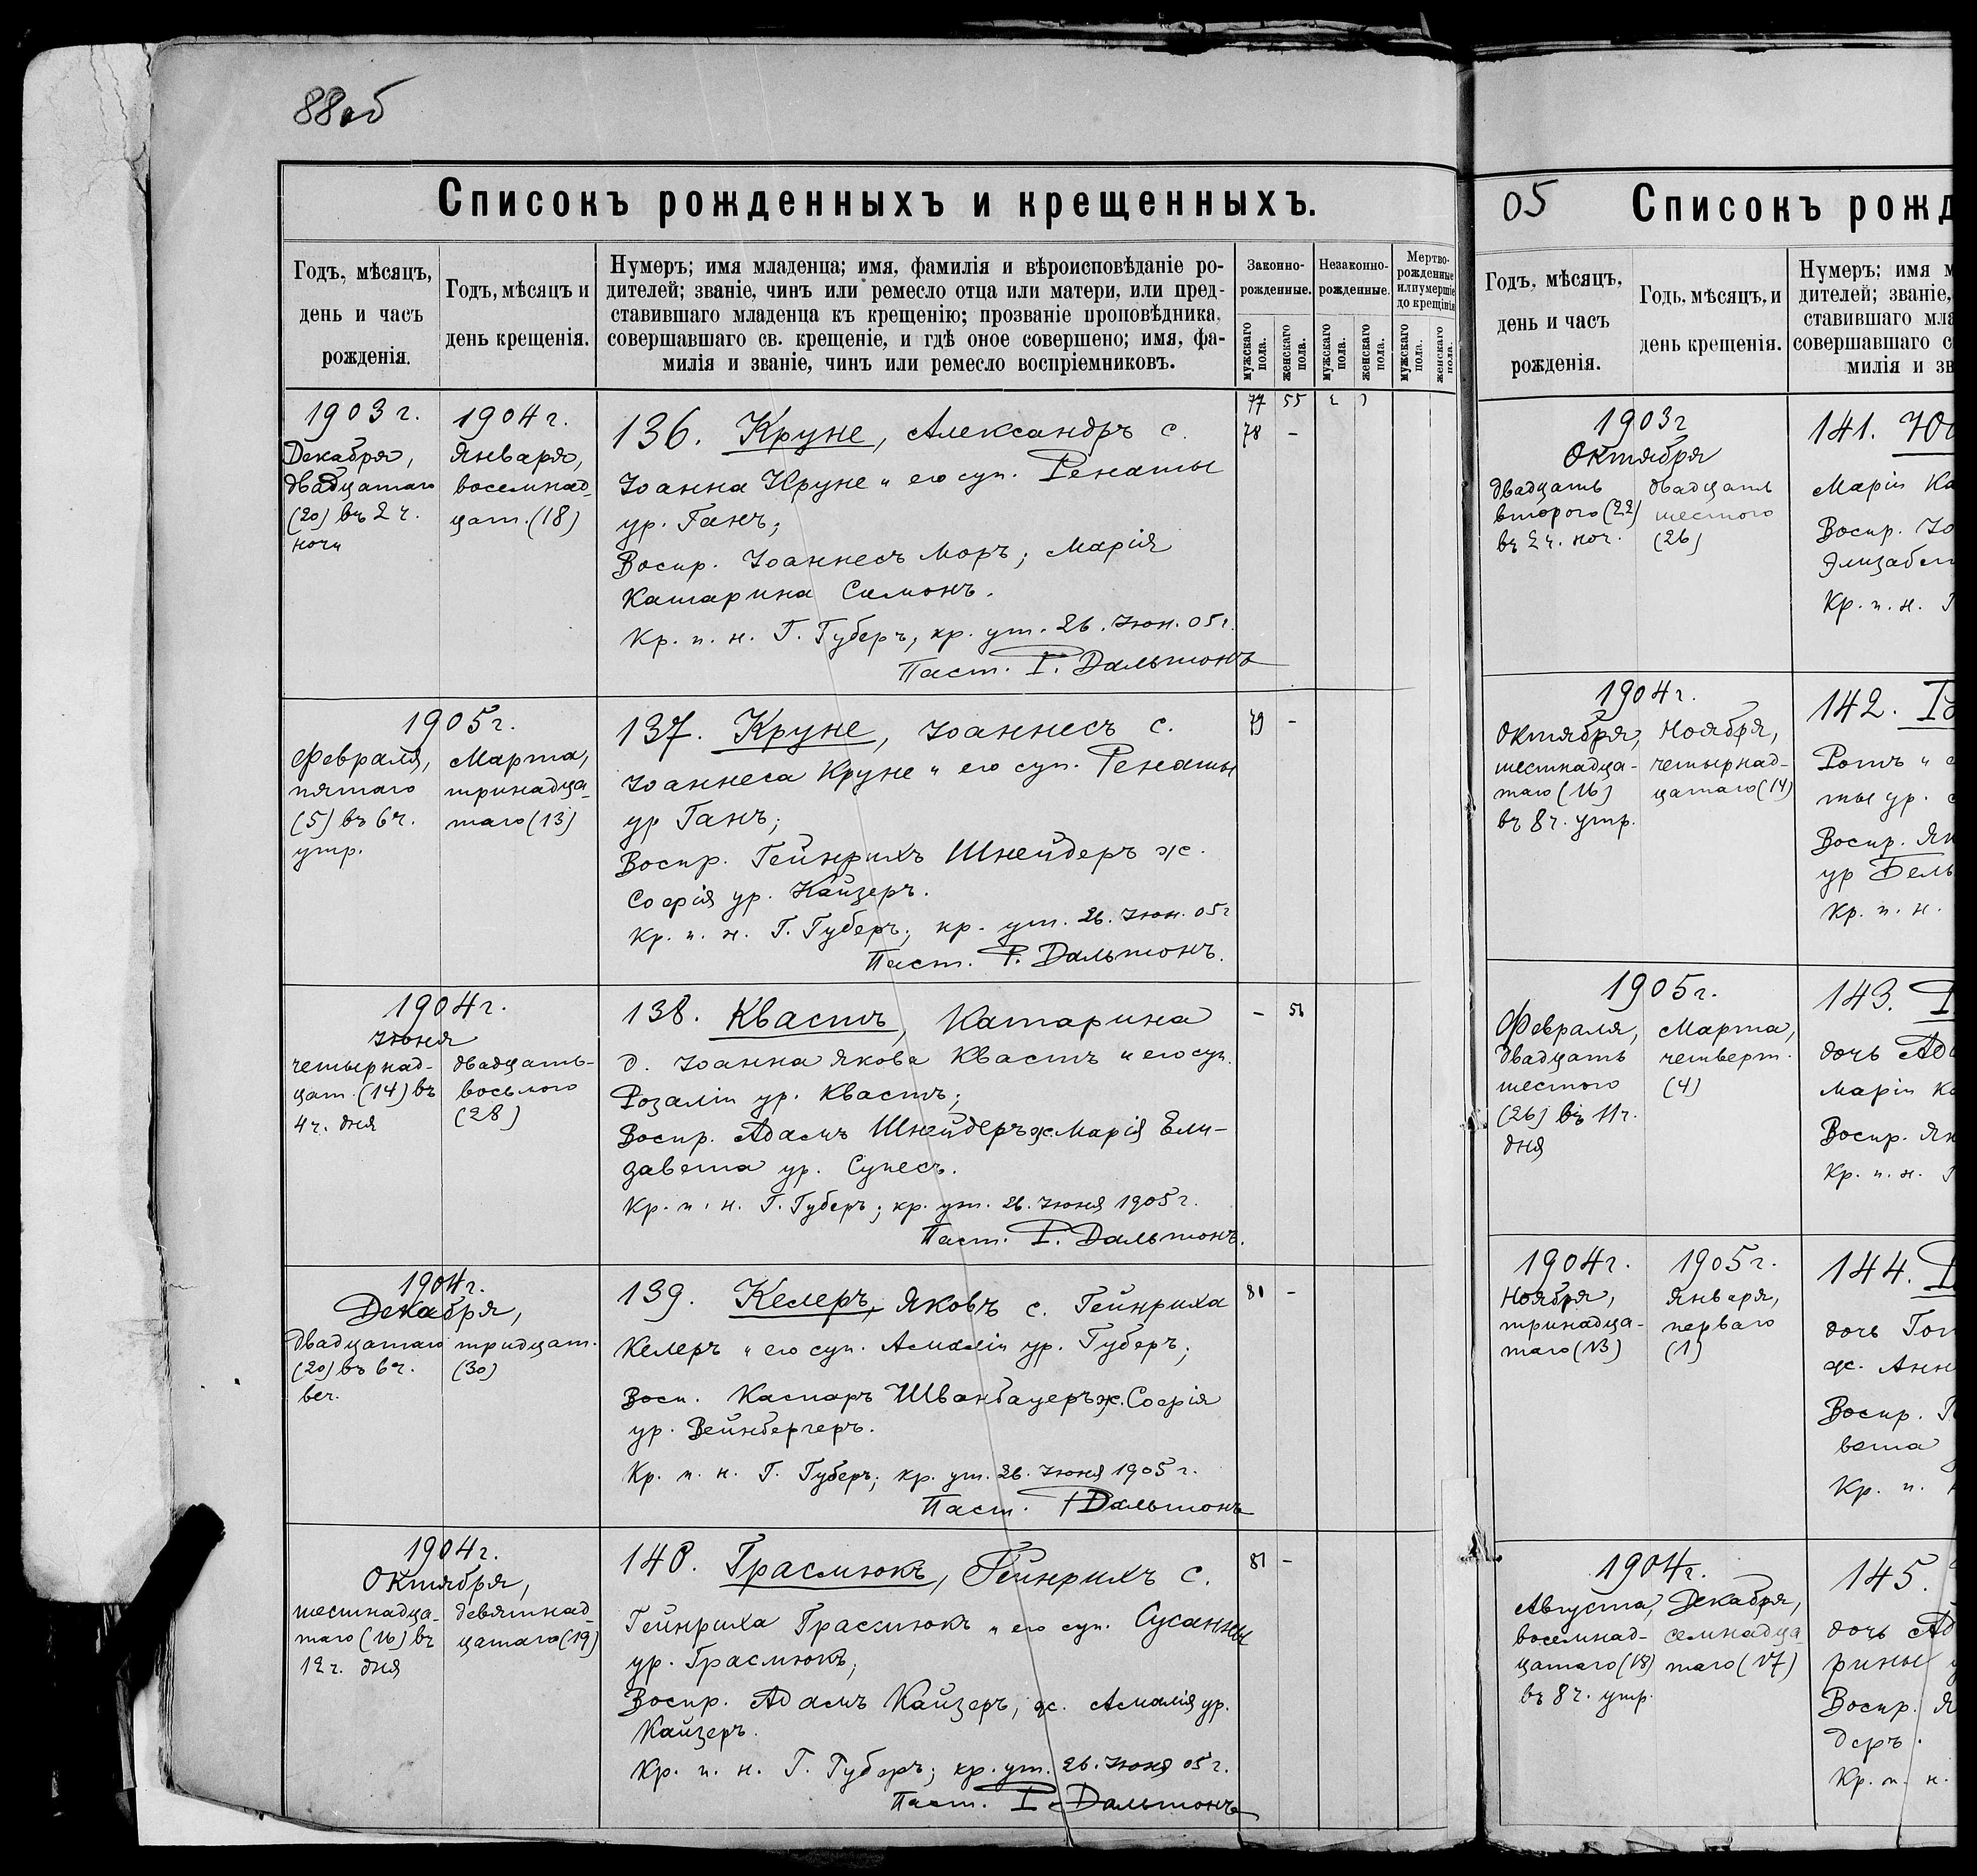 88об
Списокъ рожденныхъ и крещенныхъ.
Годъ, мѣсяцъ,
день и часъ
рожденія.
Годъ, мѣсяцъ и
день крещенія.
Нумеръ; имя младенца; имя, фамилія и вѣроисповѣданіе ро-
дителей; званіе, чинъ или ремесло отца или матери, или пред-
ставившаго младенца къ крещенію; прозваніе проповѣдника,
совершавшаго св. крещеніе, и гдѣ оное совершено; имя, фа-
милія и званіе, чинъ или ремесло воспріемниковъ.
Законно-
рожденные.
Незаконно-
рожденные.
Мертво-
рожденные
или умершіе
до крещінія
мужскаго
пола.
женскаго
пола.
мужскаго
пола.
женскаго
пола.
мужскаго
пола.
женскаго
пола.
77 55
1903 г.
Декабря,
двадцатаго
(20) въ 2 ч.
ночи
1904 г.
Января,
восемнад-
цат. (18)
136. Круне, Александръ с.
Іоанна Круне и его суп. Ренаты
ур. Ганъ;
Воспр. Іоаннесъ Моръ; Марія
Катарина Симонъ.
Кр. п. н. Г. Губеръ, кр. ут. 26. Іюн. 05 г.
Паст. Г. Дальтонъ
78 –
1905 г.
Февраля,
пятаго
(5) въ 6 ч.
утр.
Марта,
тринадца-
таго (13)
137. Круне, Іоаннесъ с.
Іоаннеса Круне и его суп. Ренаты
ур Ганъ;
Воспр. Гейнрихъ Шнейдеръ ж.
Софія ур. Кайзеръ.
Кр. п. н. Г. Губеръ; кр. ут. 26. Іюн. 05 г
Паст. Г. Дальтонъ.
79 –
1904 г.
Іюня
четырнад-
цат. (14) въ
4 ч. дня
двадцать-
восьмого
(28)
138. Квастъ, Катарина
д. Іоанна Якова Квастъ и его суп.
Розаліи ур. Квастъ;
Воспр. Адамъ Шнейдеръ ж. Марія Ели-
завета ур. Супесъ.
Кр. п. н. Г. Губеръ; кр. ут. 26. Іюня 1905 г.
Паст. Г. Дальтонъ.
– 56
1904 г.
Декабря,
двадцатаго
(20) въ 6 ч.
веч.
тридцат.
(30)
139. Келеръ, Яковъ с. Гейнриха
Келеръ и его суп. Амаліи ур. Губеръ;
Восп. Каспаръ Шванбауеръ ж. Софія
ур. Вейнбергеръ.
Кр. п. н. Г. Губеръ; кр. ут. 26. Іюня 1905 г.
Паст. Г Дальтонъ
80 –
1904 г.
Октября,
шестнадца-
таго (16) въ
12 ч. дня
девятнад-
цатаго (19)
140. Грасмюкъ, Гейнрихъ с.
Гейнриха Грасмюкъ и его суп. Сусанны
ур. Грасмюкъ;
Воспр. Адамъ Кайзеръ, ж. Амалія ур.
Кайзеръ.
Кр. п. н. Г. Губеръ; кр. ут. 26. Іюня 05 г.
Паст. Г. Дальтонъ
81 –
05
Списокъ рожд
Годъ, мѣсяцъ,
день и часъ
рожденія.
Годъ, мѣсяцъ, и
день крещенія.
Нумеръ; имя м
дителей; званіе,
ставившаго мла
совершавшаго с
милія и зв
1903 г
Октября
двадцать
второго (22)
въ 2 ч. ноч.
двадцать
шестого
(26)
141.
Маріи Ка
Воспр. Іо
Элизабет
Кр. п. н. Г
1904 г.
Октября,
шестнадца-
таго (16)
въ 8 ч. утр.
Ноября,
четырнад-
цатаго (14)
142.
Ротъ и
ты ур.
Воспр. Як
ур Бель
Кр. п. н.
1905 г.
Февраля,
двадцать
шестого
(26) въ 11 ч.
дня
Марта,
четверт.
(4)
143.
дочь Ада
Маріи Ка
Воспр. Як
Кр. п. н. Г
1904 г.
Ноября,
тринадца-
таго (13)
1905 г.
Января,
перваго
(1)
144.
дочь Гот
ж. Анн
Воспр.
вета
Кр. п.
1904 г.
Августа,
восемнад-
цатаго (18)
въ 8 ч. утр.
Декабря,
семнадца-
таго (17)
145.
дочь Ад
рины
Воспр. Я
деръ.
Кр. п. н.